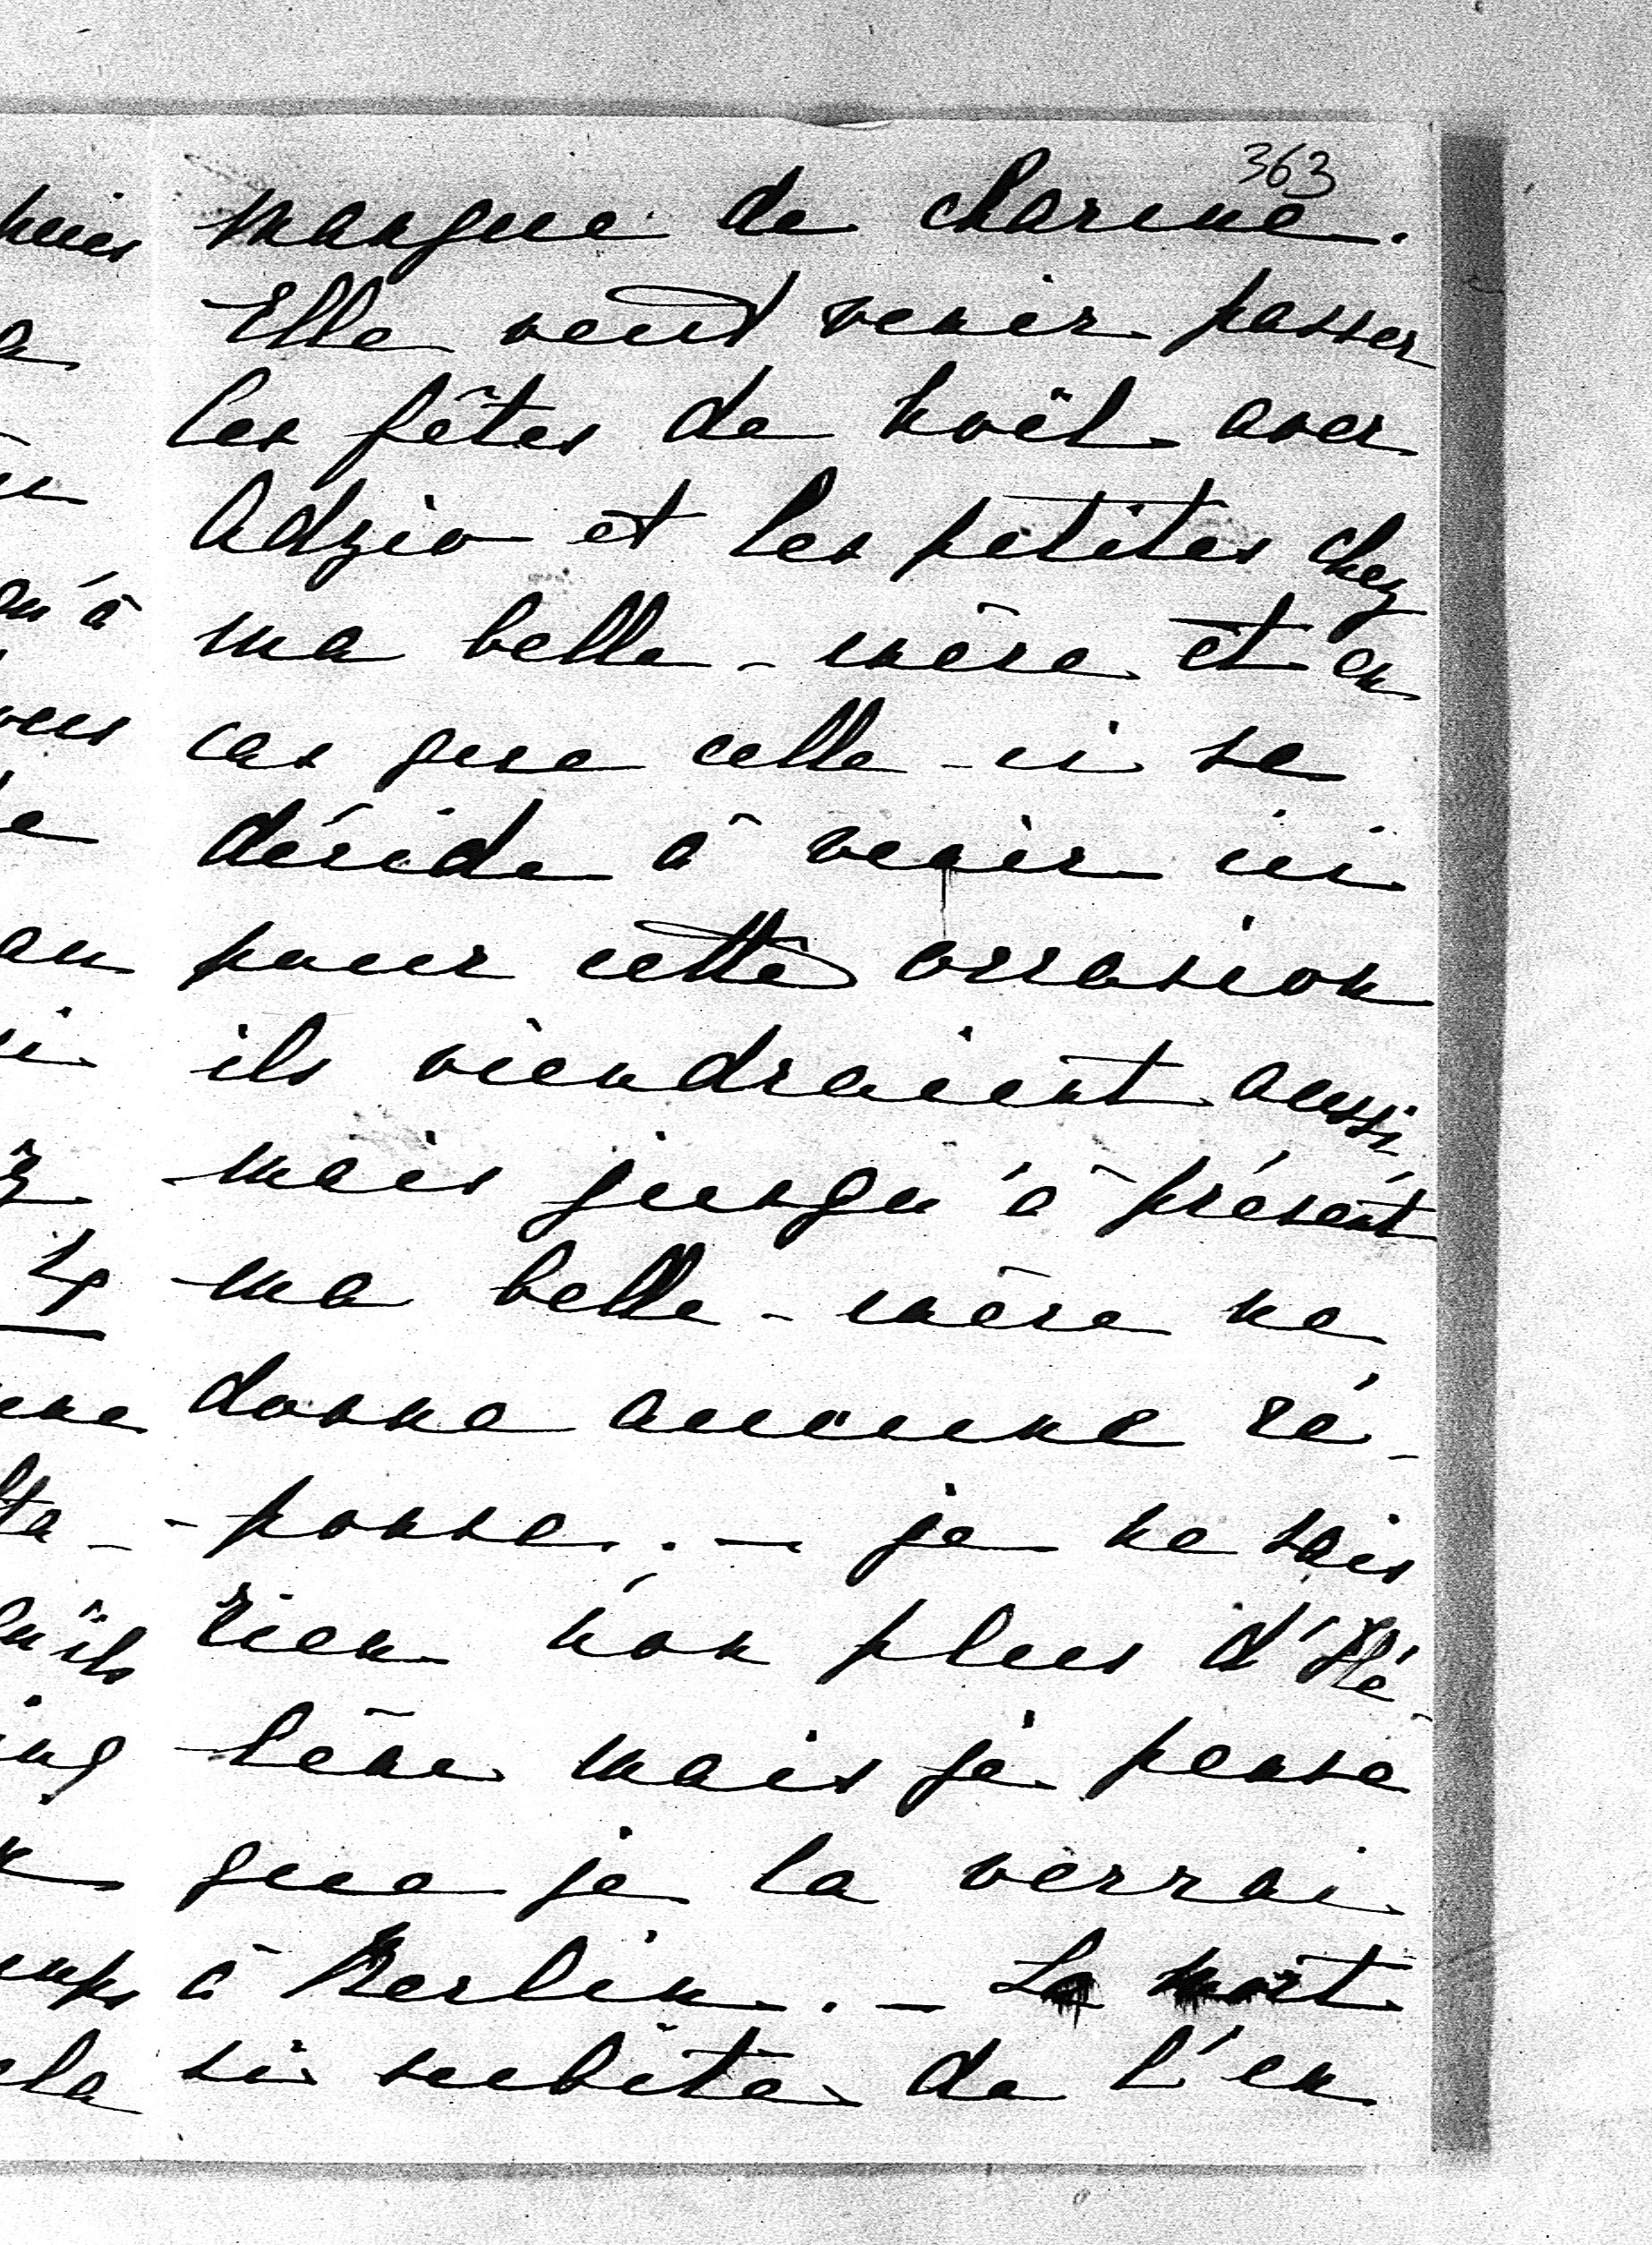 363
manque de charme.
Elle veut venir passer
les fêtes de noël avec
Adzio et les petites chez
ma belle-mère et en
cas que celle-ci se
décide à venir ici
pour cette occasion
ils viendraient aussi,
mais jusqu'à présent
ma belle-mère ne
donne aucune ré-
-ponse. - je ne sais
rien non plus d'Hé
-lène mais je pense
que je la verrai
à Berlin. - La mort
si subite de l'en